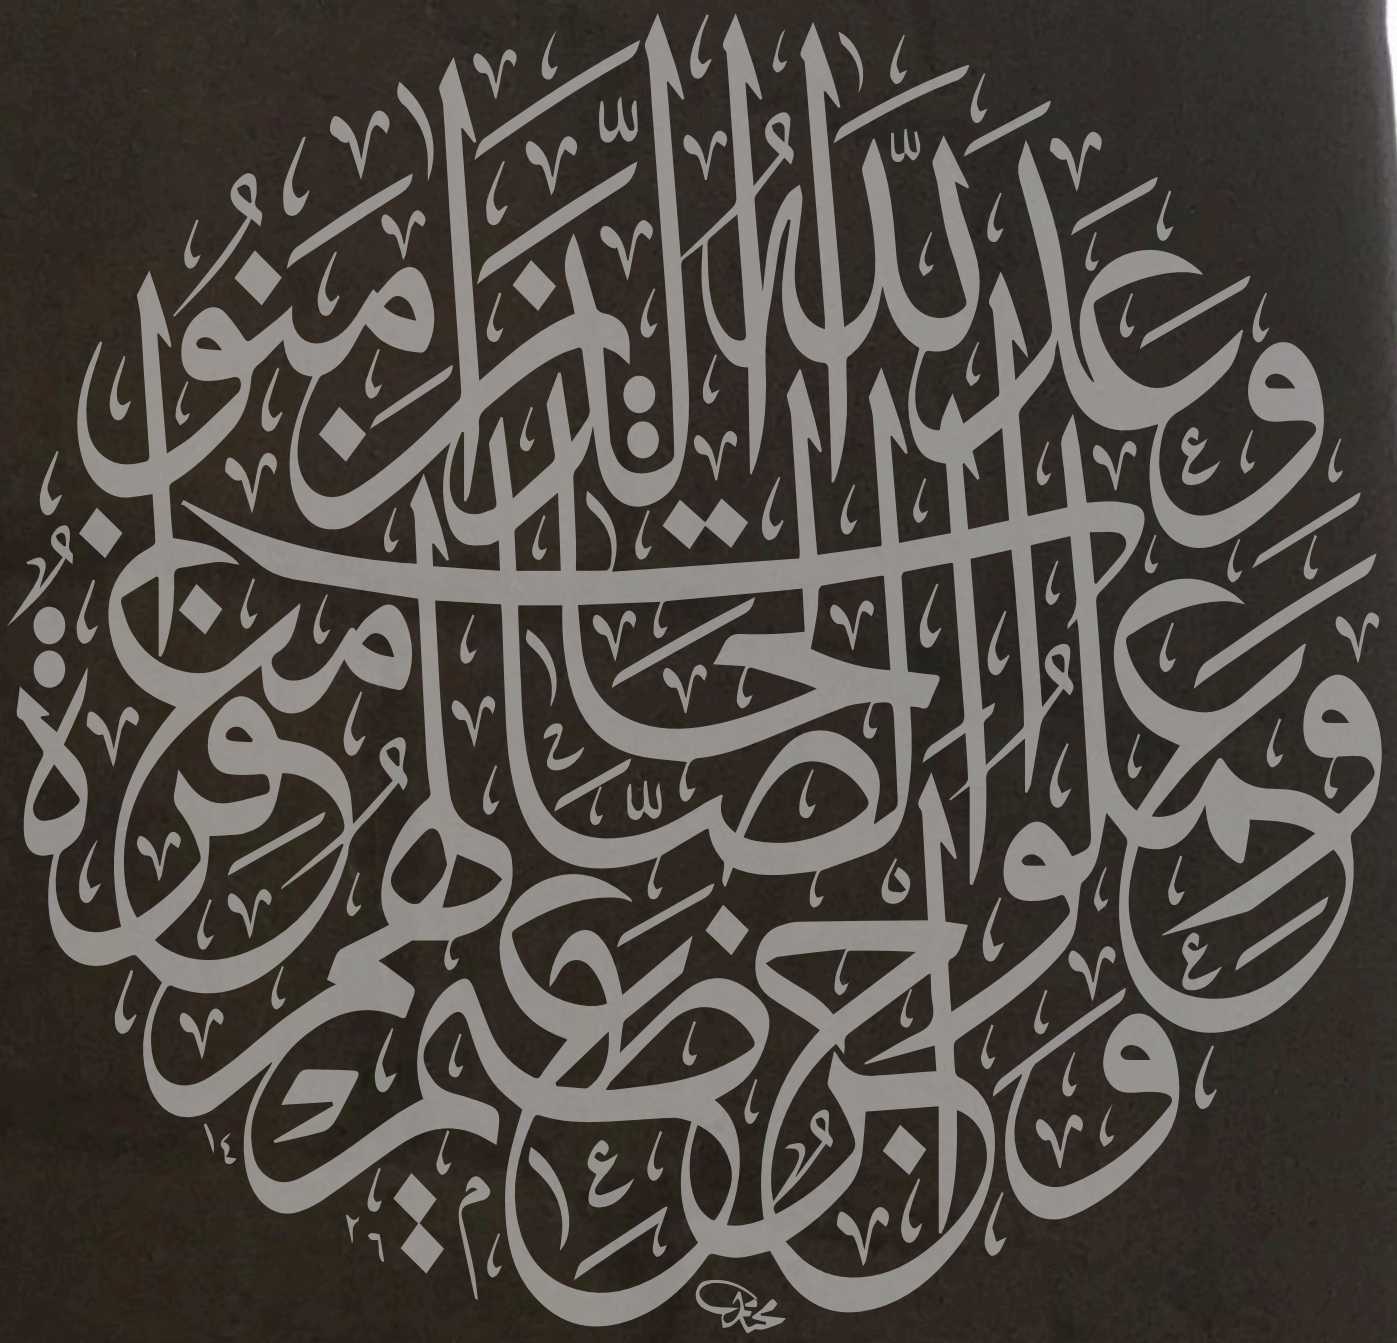 وَعَدَ اللّٰهُ الَّذِينَ اٰمَنُوا
وَعَمِلُوا الصَّالِحَاتِ لَهُمْ مَغْفِرَةٌ
وَاَجْرٌ عَظِيمٌ
١٤٢٦